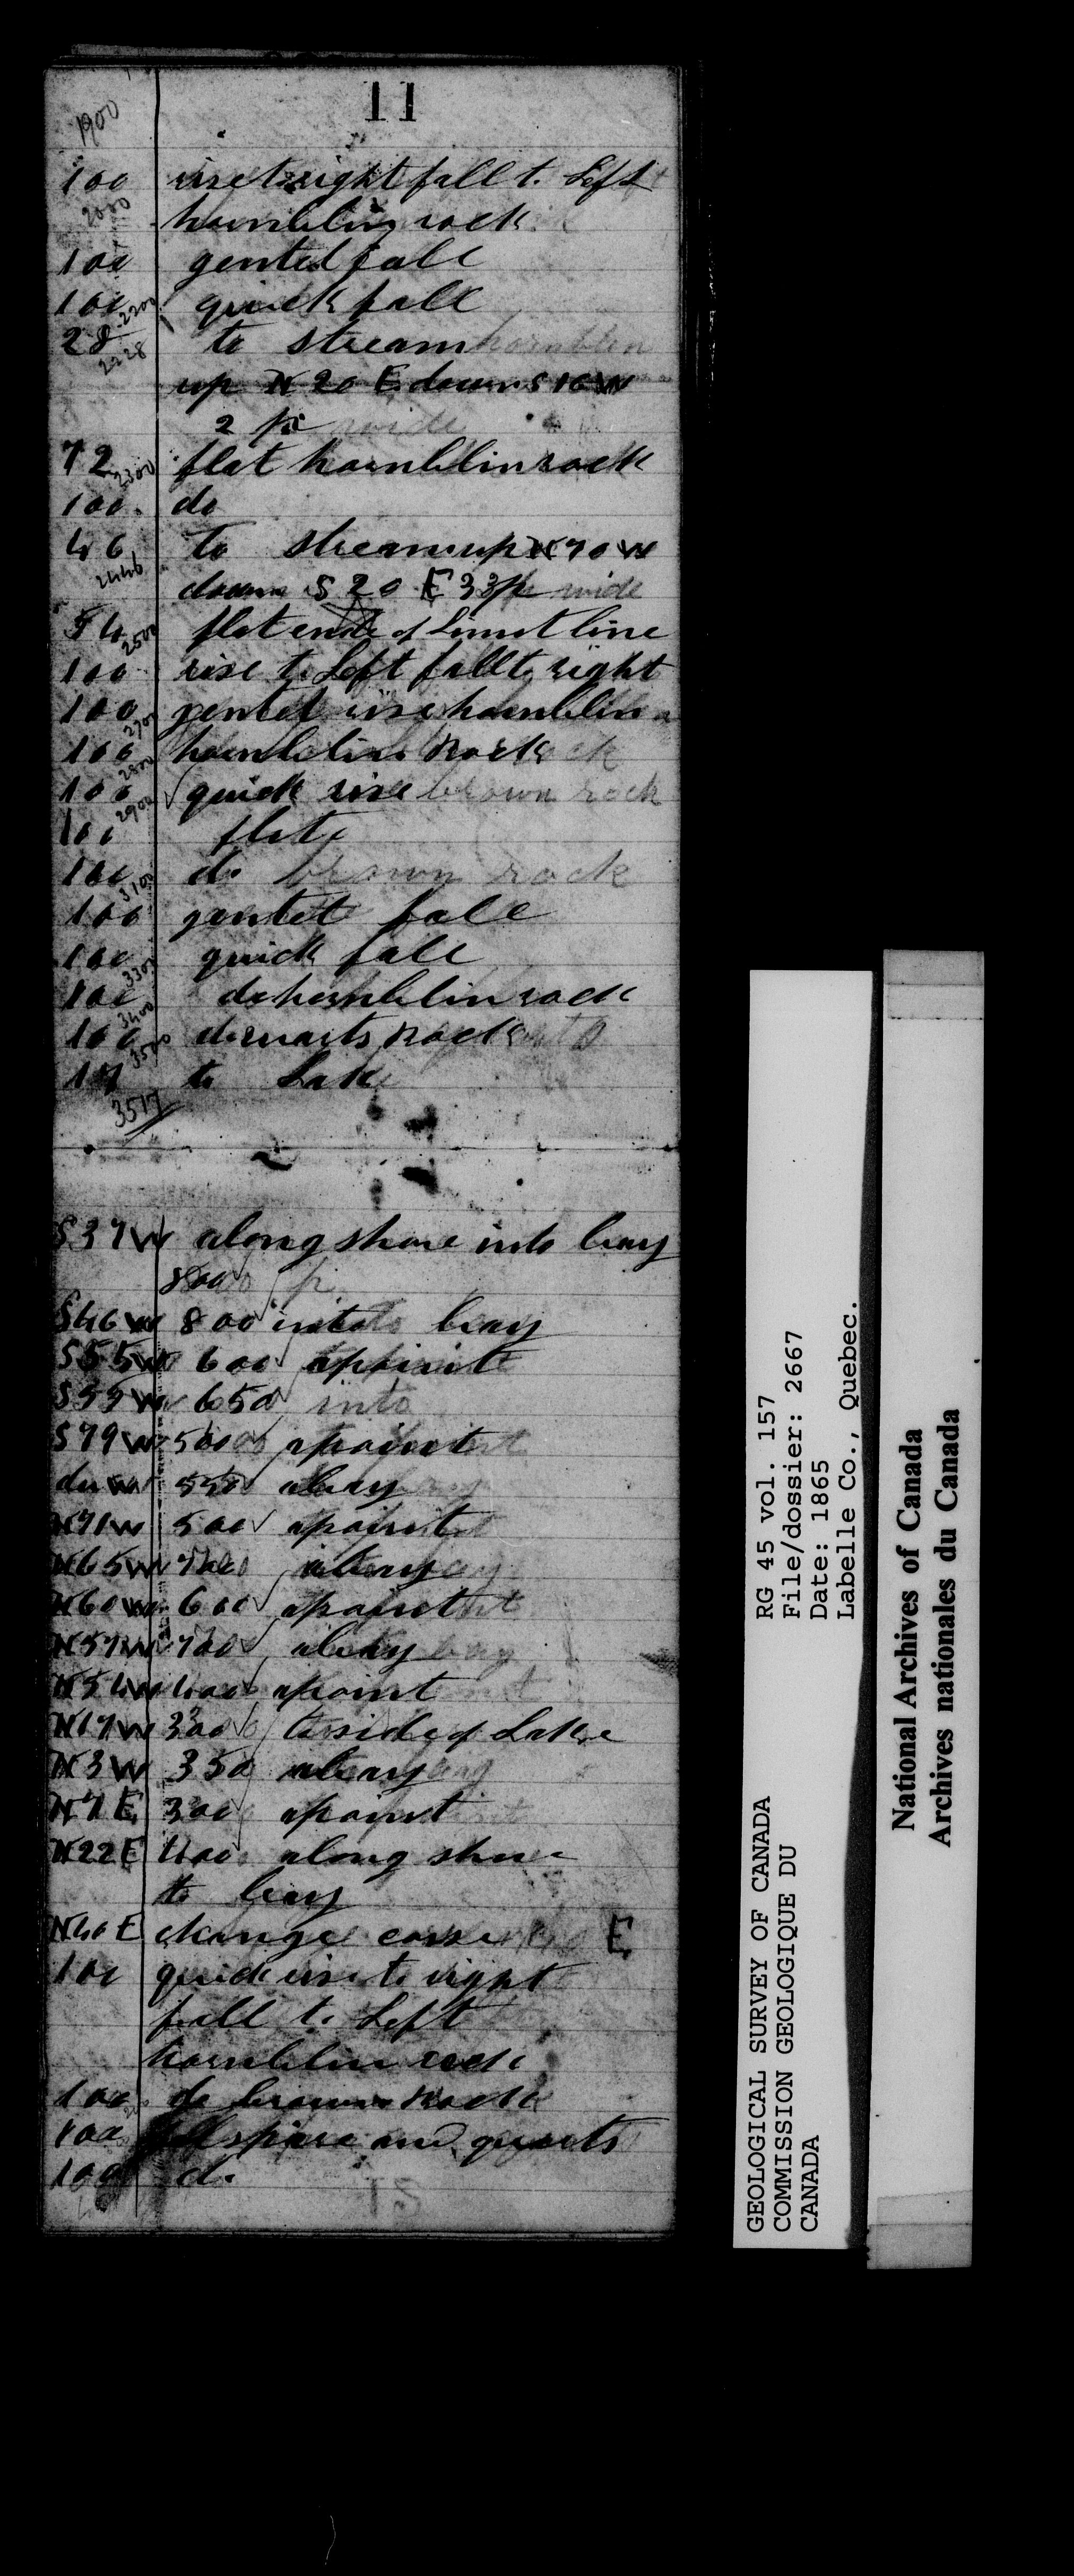 11
1900
100 rise to right fall t. Left
2000 hornblin rock
100 gentel fall
100 2200 quick fall
28 2228 to stream hornblin
up N 20 E down S 10 W
2 p wide
72 2300 flat hornblin rock
100 do
46 2446 to stream up N 70 W
down S 20 E 33 p wide
54 2500 flat ende of Limet line
100 rise to Left fall to right
100 2700 gentel rise hornblin
100 2800 hornblin Rock
100 2900 quick rise brown rock
100 flat
100 3100 do brown rock
100 gentel fall
100 3300 quick fall
100 3400 do hornblin rock
100 3500 do quarts Rock
17 to Lake
3517
S37W along shore into bay
800 p
S46W 800 into bay
S55W 600 apoint
S55W 650 into
S79W 500 apoint
du W 550 abay
N71W 500 apoint
N65W 700 abay
N60W 600 apoint
N57W 700 abay
N54W 400 apoint
N17W 300 to side of Lake
N3W 350 abay
N7E 300 apoint
N22E 400 along shore
to bay
N40E change corse E
100 quick rise to right
fall to Left
hornblin rock
100 do brown Rock
100 felspare and quarts
100 do
GEOLOGICAL SURVEY OF CANADA
COMMISSION GEOLOGIQUE DU
CANADA
RG 45 vol. 157
File/dossier: 2667
Date: 1865
Labelle Co., Quebec.
National Archives of Canada
Archives nationales du Canada